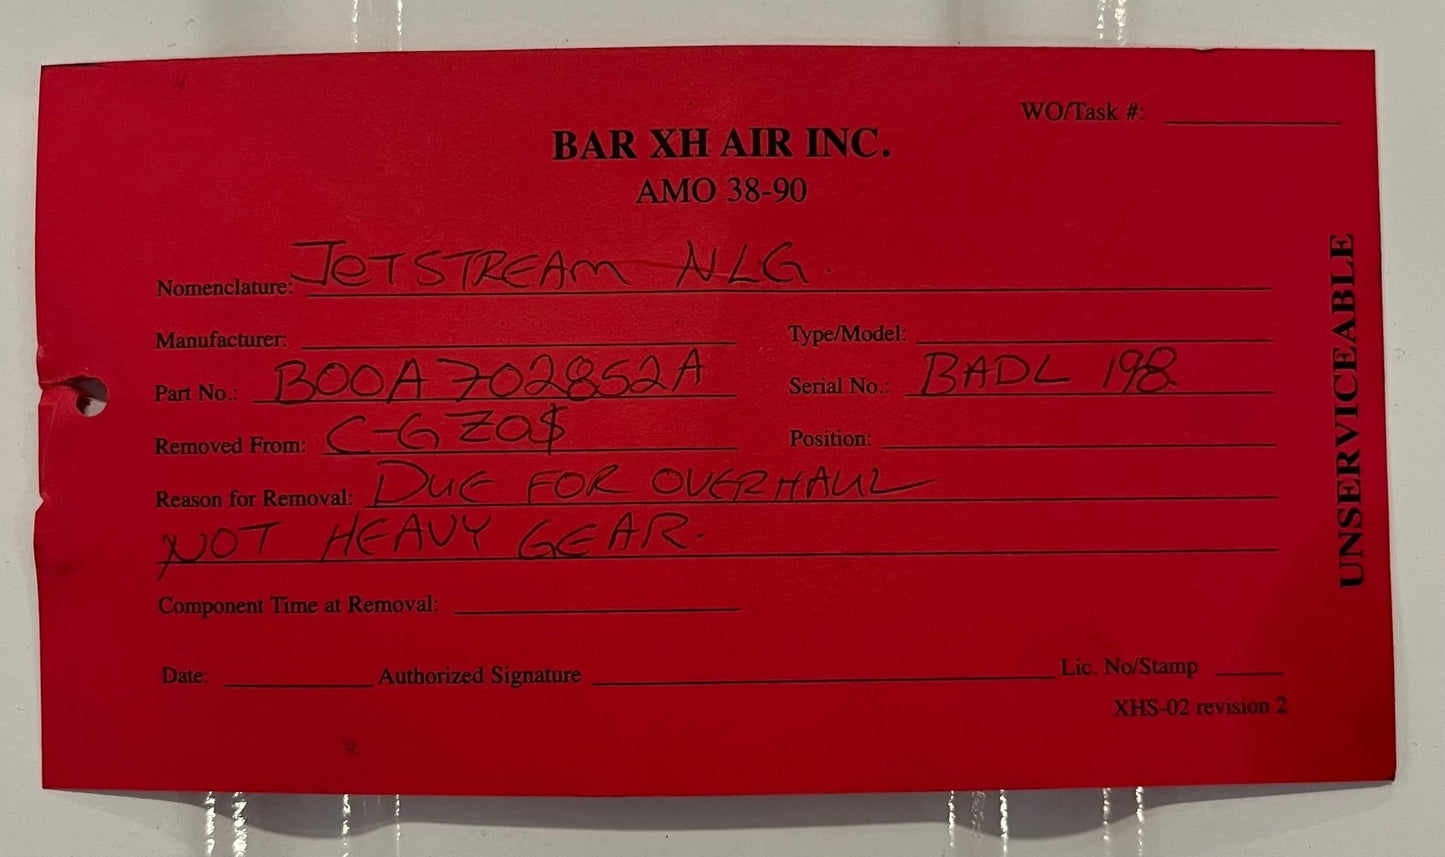 WO/Task #:
BAR XH AIR INC.
AMO 38-90
Nomenclature: JETSTREAM NLG.
Manufacturer: Type/Model:
Part No.: BOOA702852A Serial No.: BADL 198
Removed From: Position:
Reason for Removal: DUE FOR OVERHAUL
NOT HEAVY GEAR.
Component Time at Removal:
Date: Authorized Signature Lic. No/Stamp
XHS-02 revision 2
UNSERVICEABLE